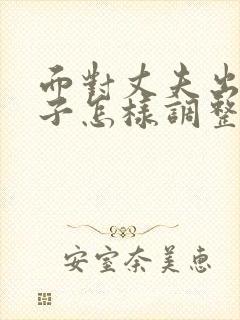 而對丈夫出
子怎樣調整
安室奈美惠